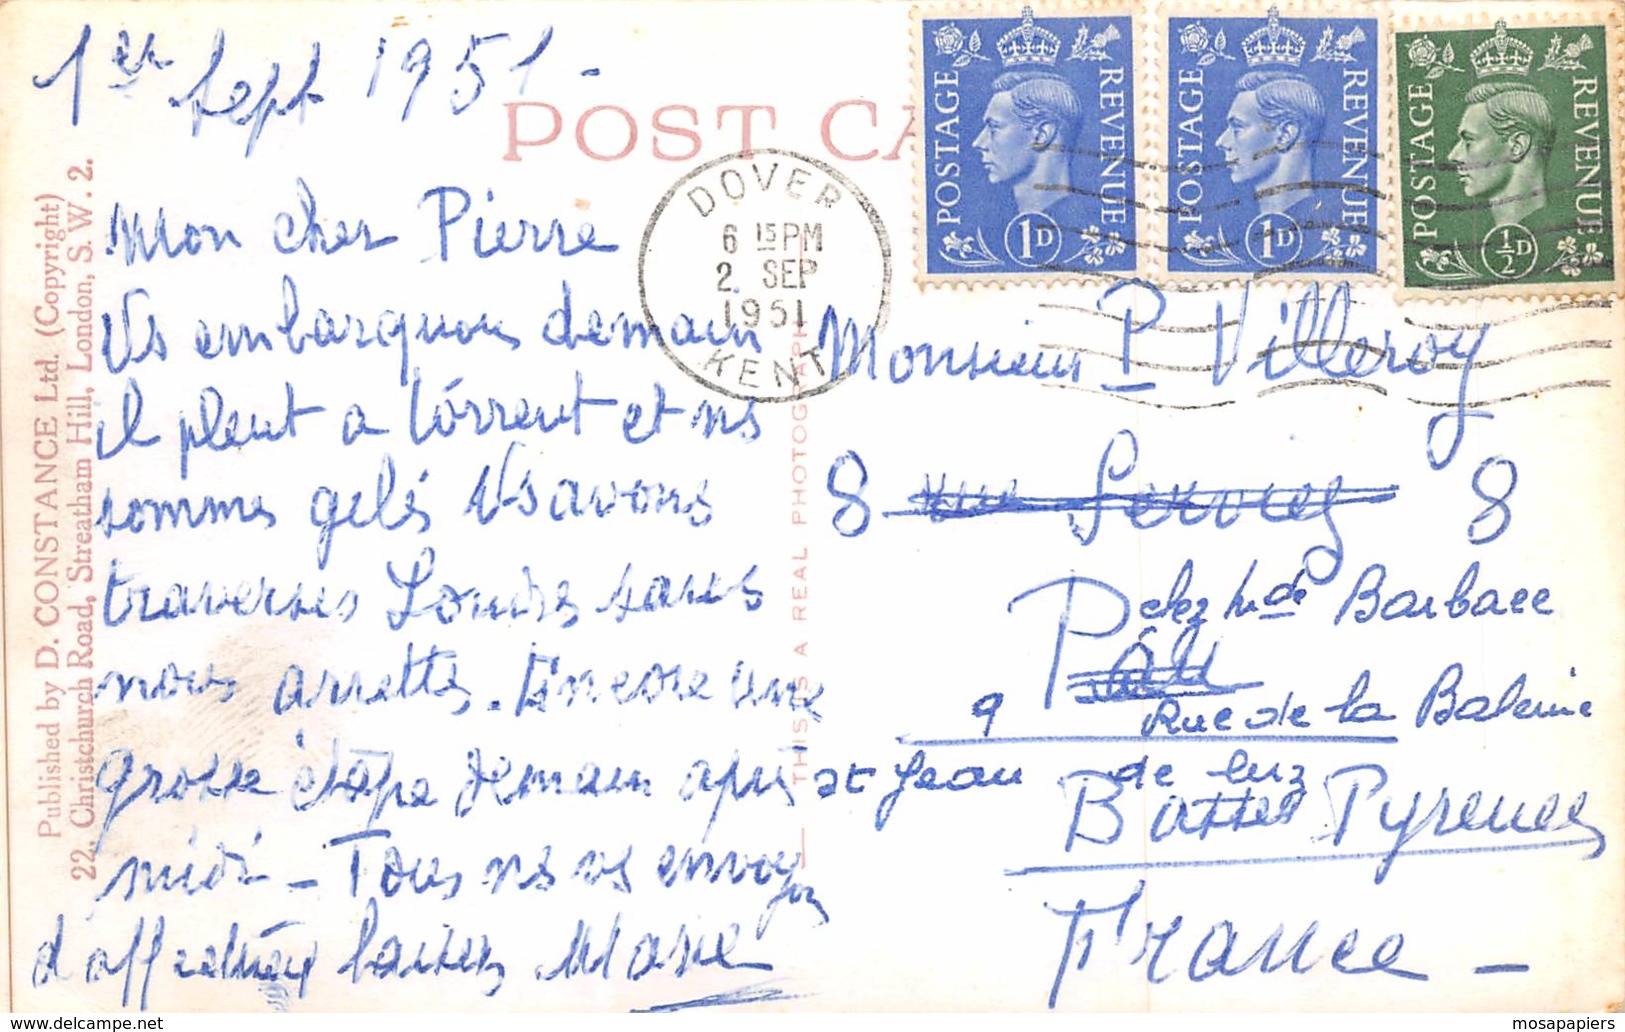 1er Sept 1951-
POST CA
Published by D. CONSTANCE Ltd. (Copyright)
22, Christchurch Road, Streatham Hill, London, S.W. 2.
THIS IS A REAL PHOTOGRAPH
POSTAGE REVENUE 1D
POSTAGE REVENUE 1D
POSTAGE REVENUE ½D
DOVER
6 15 PM
2 SEP
1951
KENT
Mon cher Pierre
Ns embarquons demain
il pleut a torrent et ns
sommes gelés Ns avons
traverses Londres sans
nous arrettés. Encore une
grosse étape demain apres
midi - Tous ns vs envoyons
d'affectueux baisers Marie
Monsieur P Villeroy
8 rue 8
chez Barbace
Pau
9 Rue de la Baleine
st Jean de luz
Basses Pyrenees
France -
mosapapiers